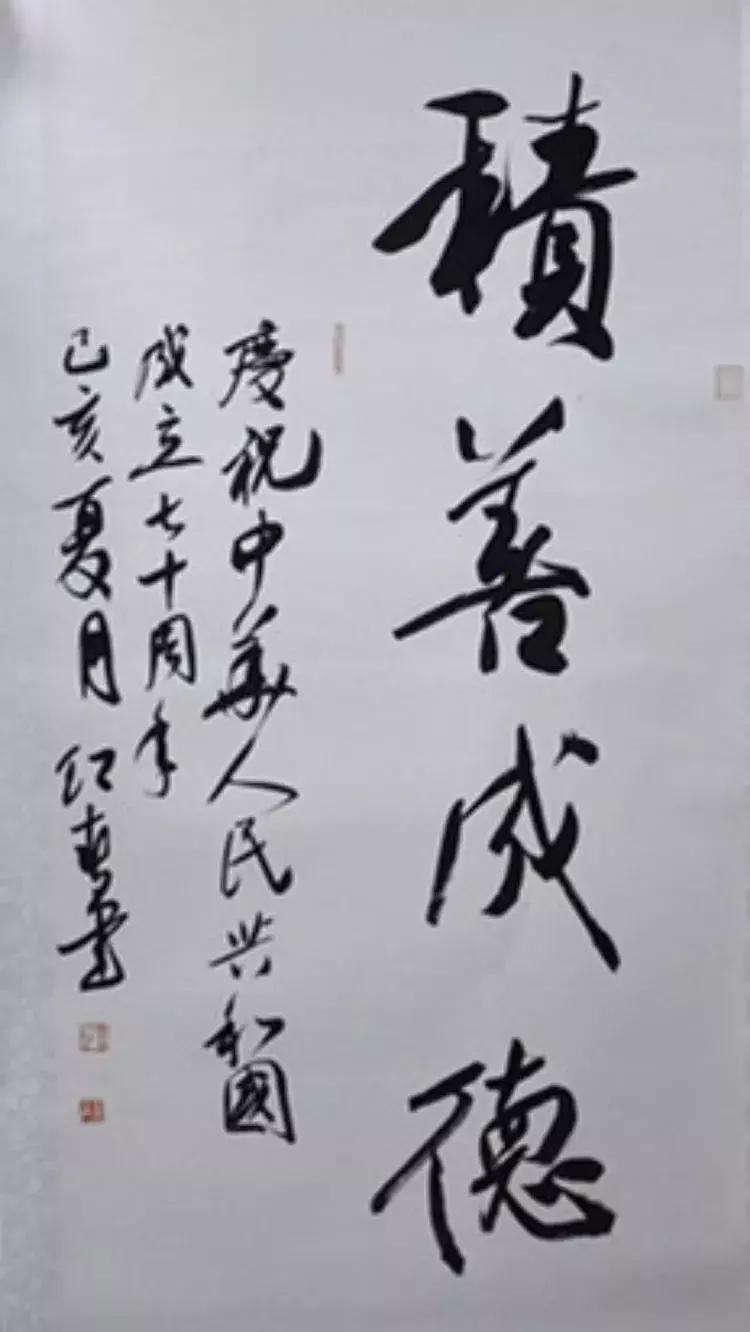 積善成德
慶祝中華人民共和國
成立七十周年
己亥夏月 紅春書